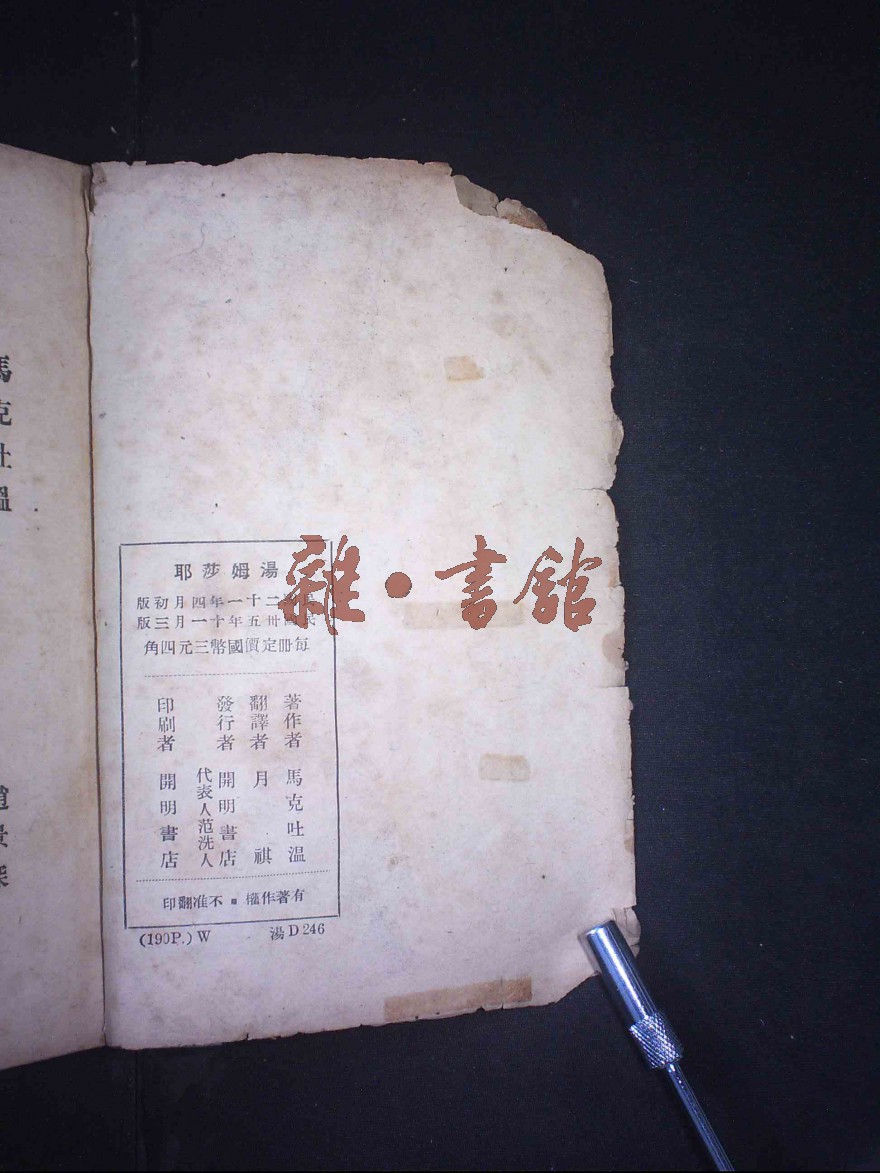 湯姆莎耶
民國二十一年四月初版
民國卅五年十一月三版
每冊定價國幣三元四角
著作者 馬克吐溫
翻譯者 月祺
發行者 開明書店
代表人范洗人
印刷者 開明書店
有著作權▪不准翻印
(190P.) W 湯 D 246
雜•書館
馬克吐溫